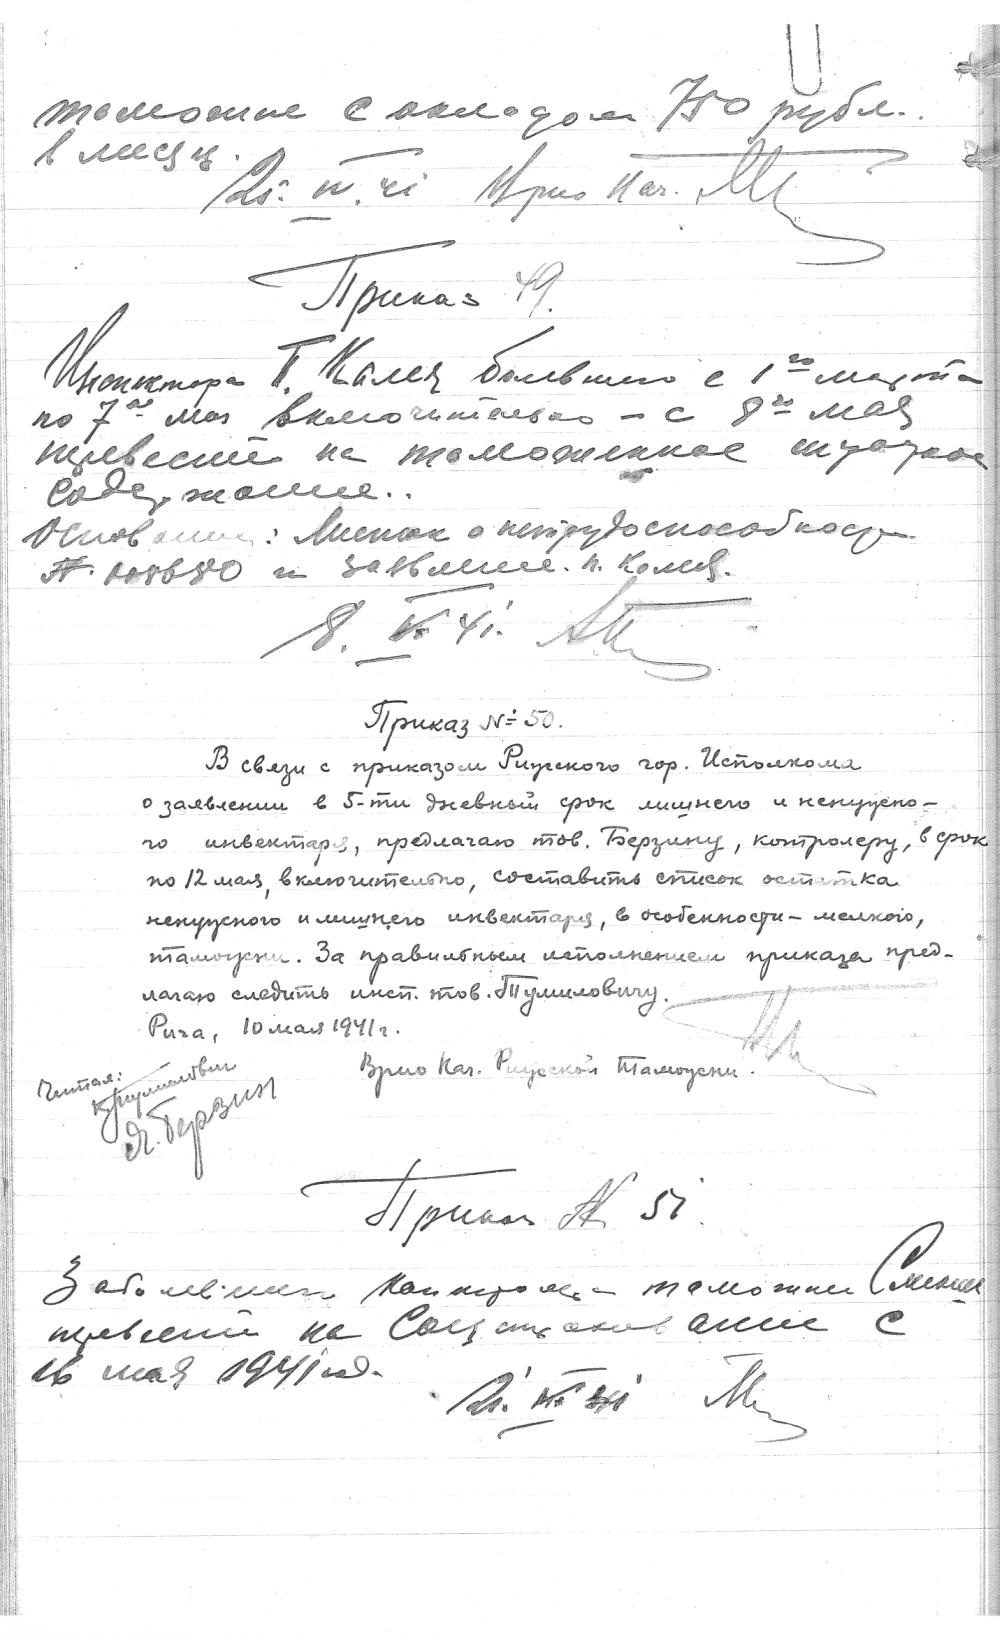 таможне с окладом 750 рубл.
в месяц.
25. IV. 41 Врио Нач.
Приказ 49.
Инспектора Калей болевшего с 1го марта
по 7ое мая включительно – с 8го мая
перевести на таможенное
содержание..
Основание: Листок о нетрудоспособности
№ и заявление.
8. V. 41.
Приказ № 50.
В связи с приказом Рижского гор. Исполкома
о заявлении в 5-ти дневный срок лишнего и ненужно-
го инвентаря, предлагаю тов. Берзину, контролеру, в срок
по 12 мая, включительно, составить список остатка
ненужного и лишнего инвентаря, в особенности – мелкого,
таможни. За правильным исполнением приказа пред-
лагаю следить инсп. тов. Тумиловичу.
Рига, 10 мая 1941 г.
Врио Нач. Рижской Таможни.
Читал:
К. Тумилович
Я. Берзин
Приказ № 51
таможни
перевести на Соцстрахование с
16 мая 1941 год.